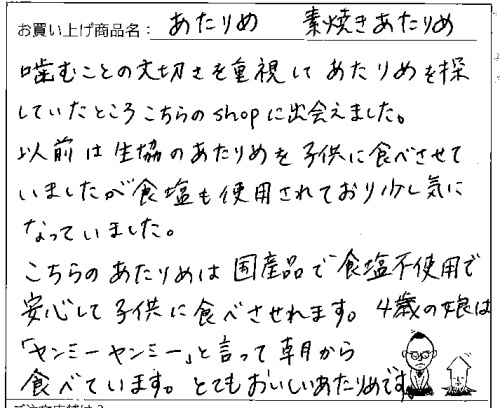 お買い上げ商品名： あたりめ　素焼きあたりめ
噛むことの大切さを重視してあたりめを探
していたところこちらのshopに出会えました。
以前は生協のあたりめを子供に食べさせて
いましたが食塩も使用されており少し気に
なっていました。
こちらのあたりめは国産品で食塩不使用で
安心して子供に食べさせれます。4歳の娘は
「ヤンミーヤンミー」と言って朝から
食べています。とてもおいしいあたりめです